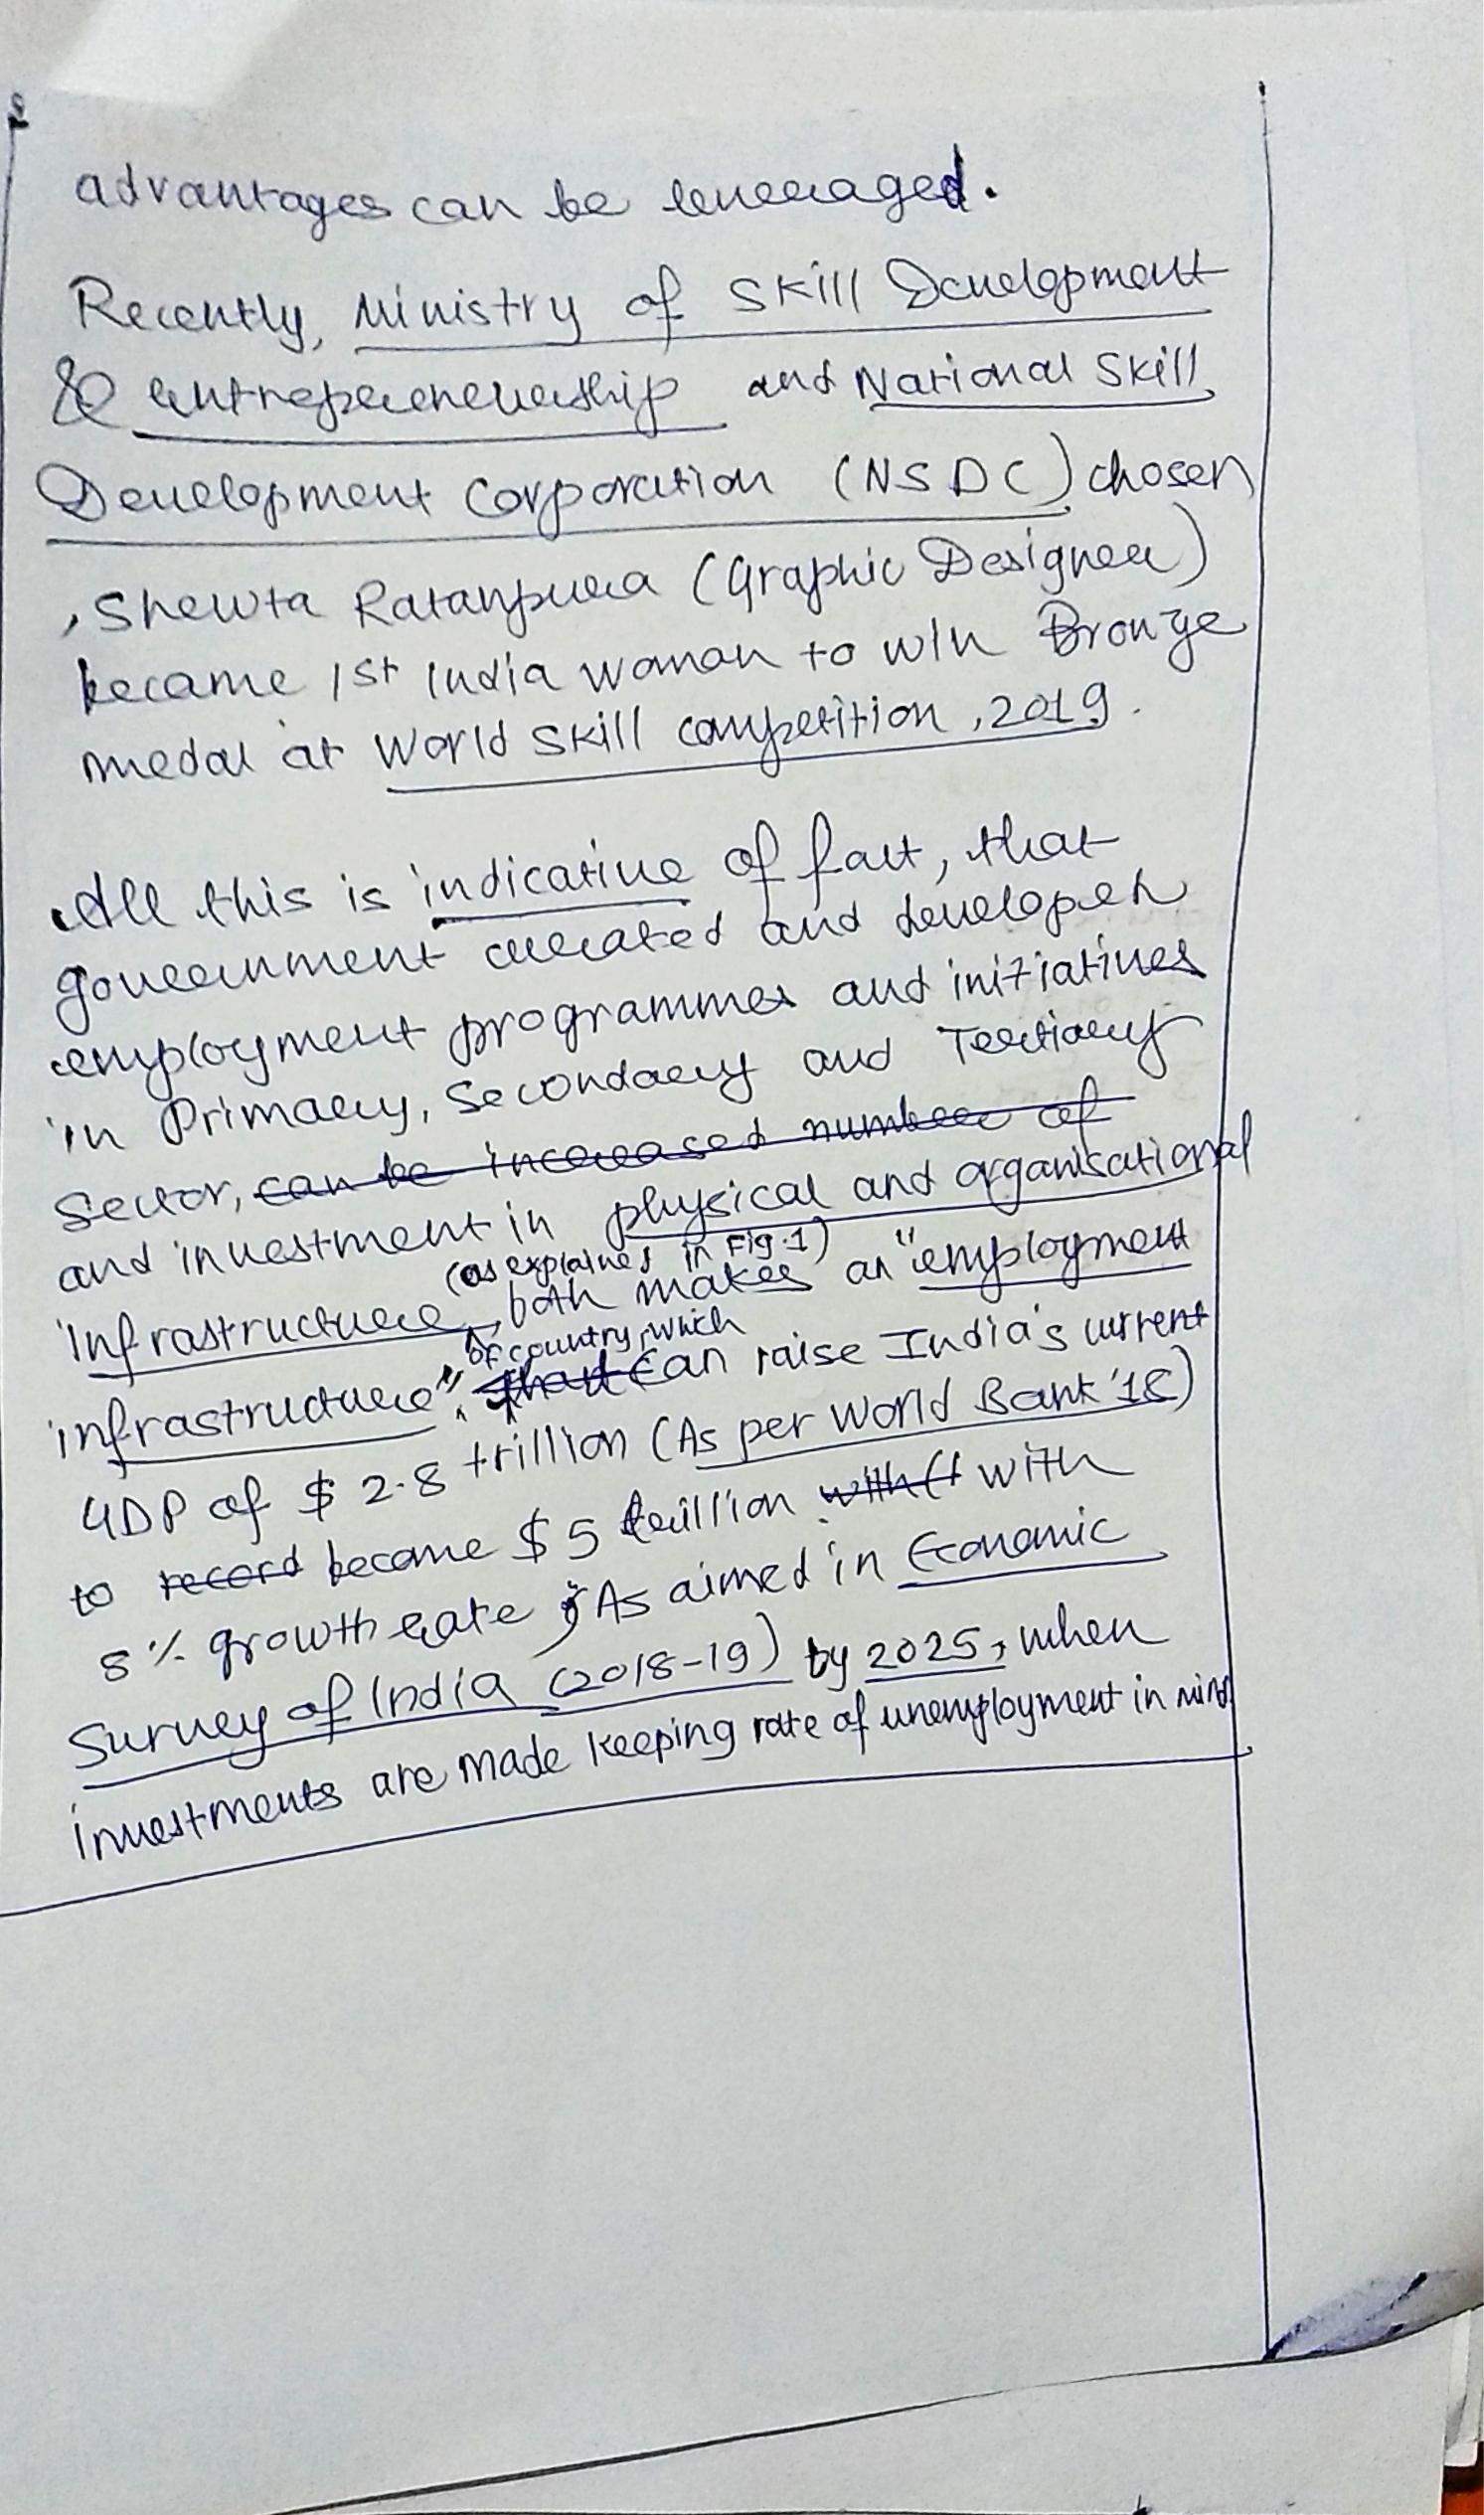 advantages can be leveraged.
Recently, Ministry of Skill Development
& entrepreneurship and National Skill
Development Corporation (NSDC) chosen
, Shewta Ratanpura (Graphic Designer)
became 1st India woman to win Bronze
medal at World Skill competition, 2019.
All this is indicative of fact, that
government created and developed
employment programmes and initiatives
in Primary, Secondary and Tertiary
Sector, can be increased number of
and investment in physical and organisational
(as explained in Fig.1)
infrastructure, both makes an "employment
of country, which
infrastructure", that can raise India's current
GDP of $ 2.8 trillion (As per World Bank '18)
to record become $ 5 trillion with with
8% growth rate, As aimed in Economic
Survey of India (2018-19) by 2025, when
investments are made keeping rate of unemployment in mind